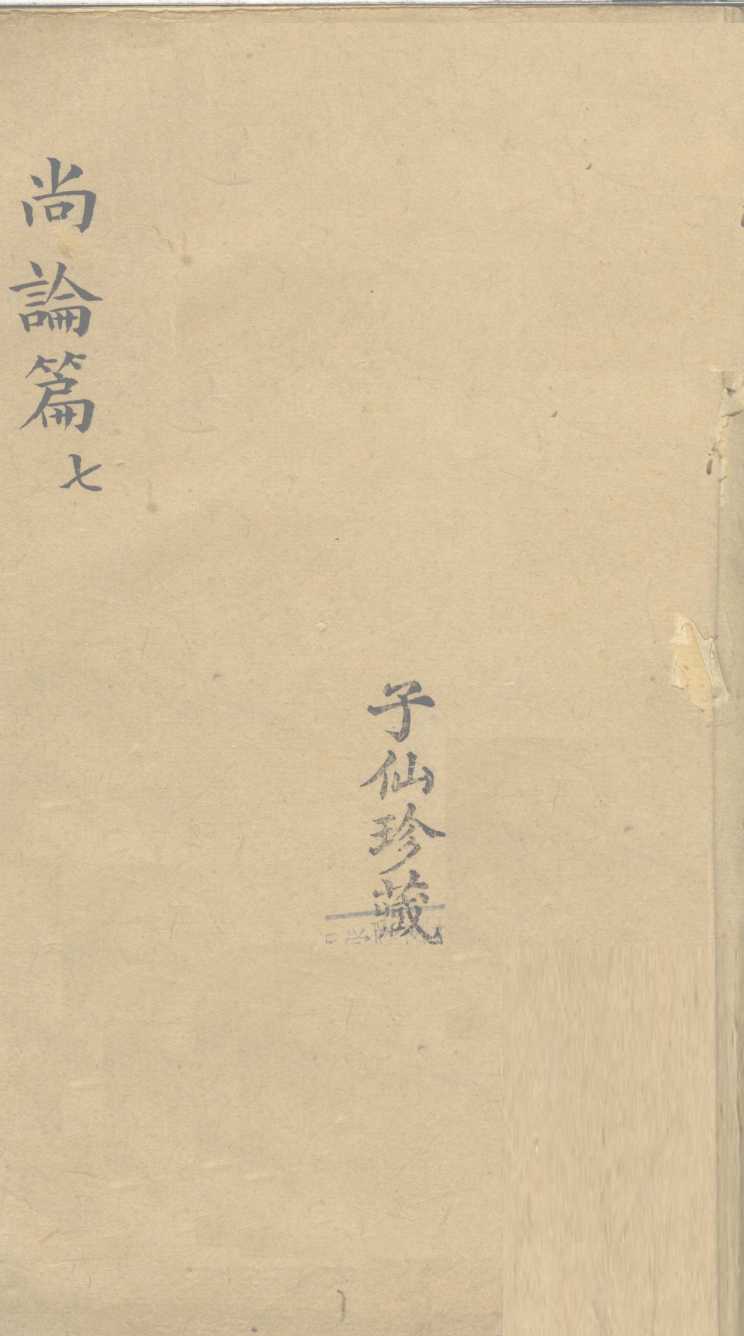 子仙珍藏
尚論篇七